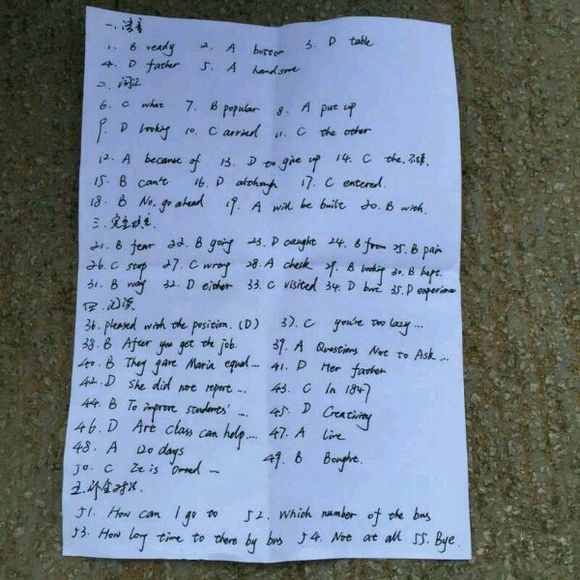 一. 语音
1. B ready 2. A bottom 3. D table
4. D father 5. A handsome
二.
6. C what 7. B popular 8. A put up
9. D looking 10. C arrived 11. C the other
12. A because of 13. D to give up 14. C the, 不填
15. B can't 16. D although 17. C entered.
18. B No, go ahead 19. A will be built 20. B with.
三. 完型
21. B fear 22. B going 23. D caught 24. B from 25. B pain
26. C stop 27. C wrong 28. A check 29. B looking 30. B kept.
31. B way 32. D either 33. C visited 34. D but 35. D experience
四. 阅读
36. pleased with the position. (D) 37. C you're too lazy ...
38. B After you get the job. 39. A Questions Not to Ask ...
40. B They gave Maria equal ... 41. D Her father
42. D She did not report ... 43. C In 1847
44. B To improve students' ... 45. D Creativity
46. D Art class can help ... 47. A live
48. A 120 days 49. B Bought.
50. C Ze is ...
五. 补全对话.
51. How can I go to 52. Which number of the bus
53. How long time to there by bus 54. Not at all 55. Bye.